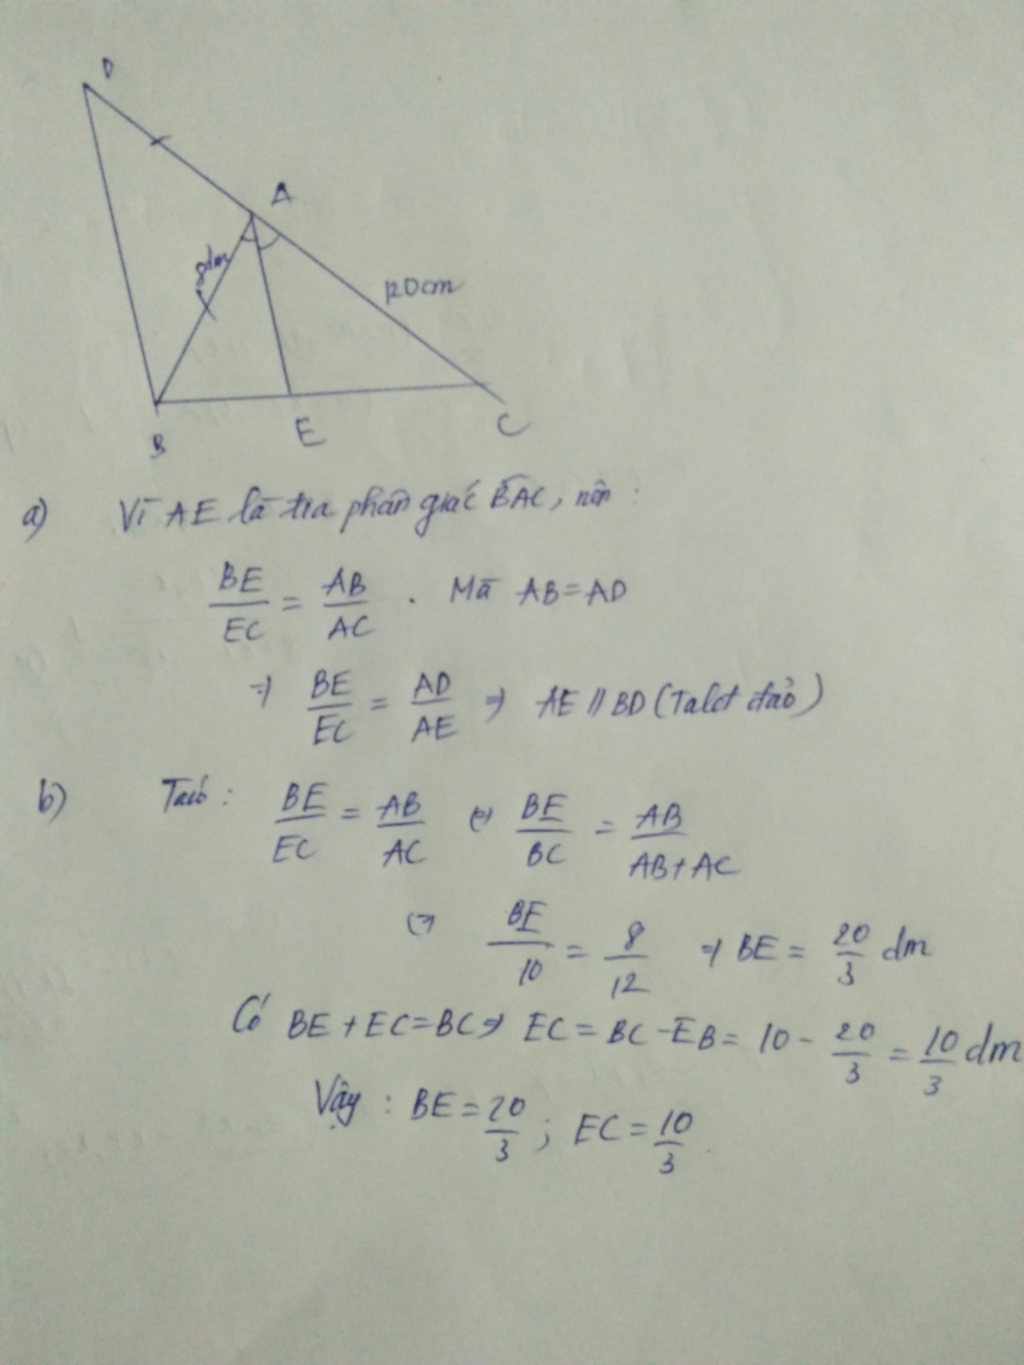 D
A
8dm
120cm
B
E
C
a) Vì AE là tia phân giác BAC, nên :
BE/EC = AB/AC . Mà AB = AD
=> BE/EC = AD/AE => AE // BD (Talet đảo)
b) Ta có : BE/EC = AB/AC <=> BE/BC = AB/AB+AC
<=> BE/10 = 8/12 => BE = 20/3 dm
Có BE + EC = BC => EC = BC - EB = 10 - 20/3 = 10/3 dm
Vậy : BE = 20/3 ; EC = 10/3 .